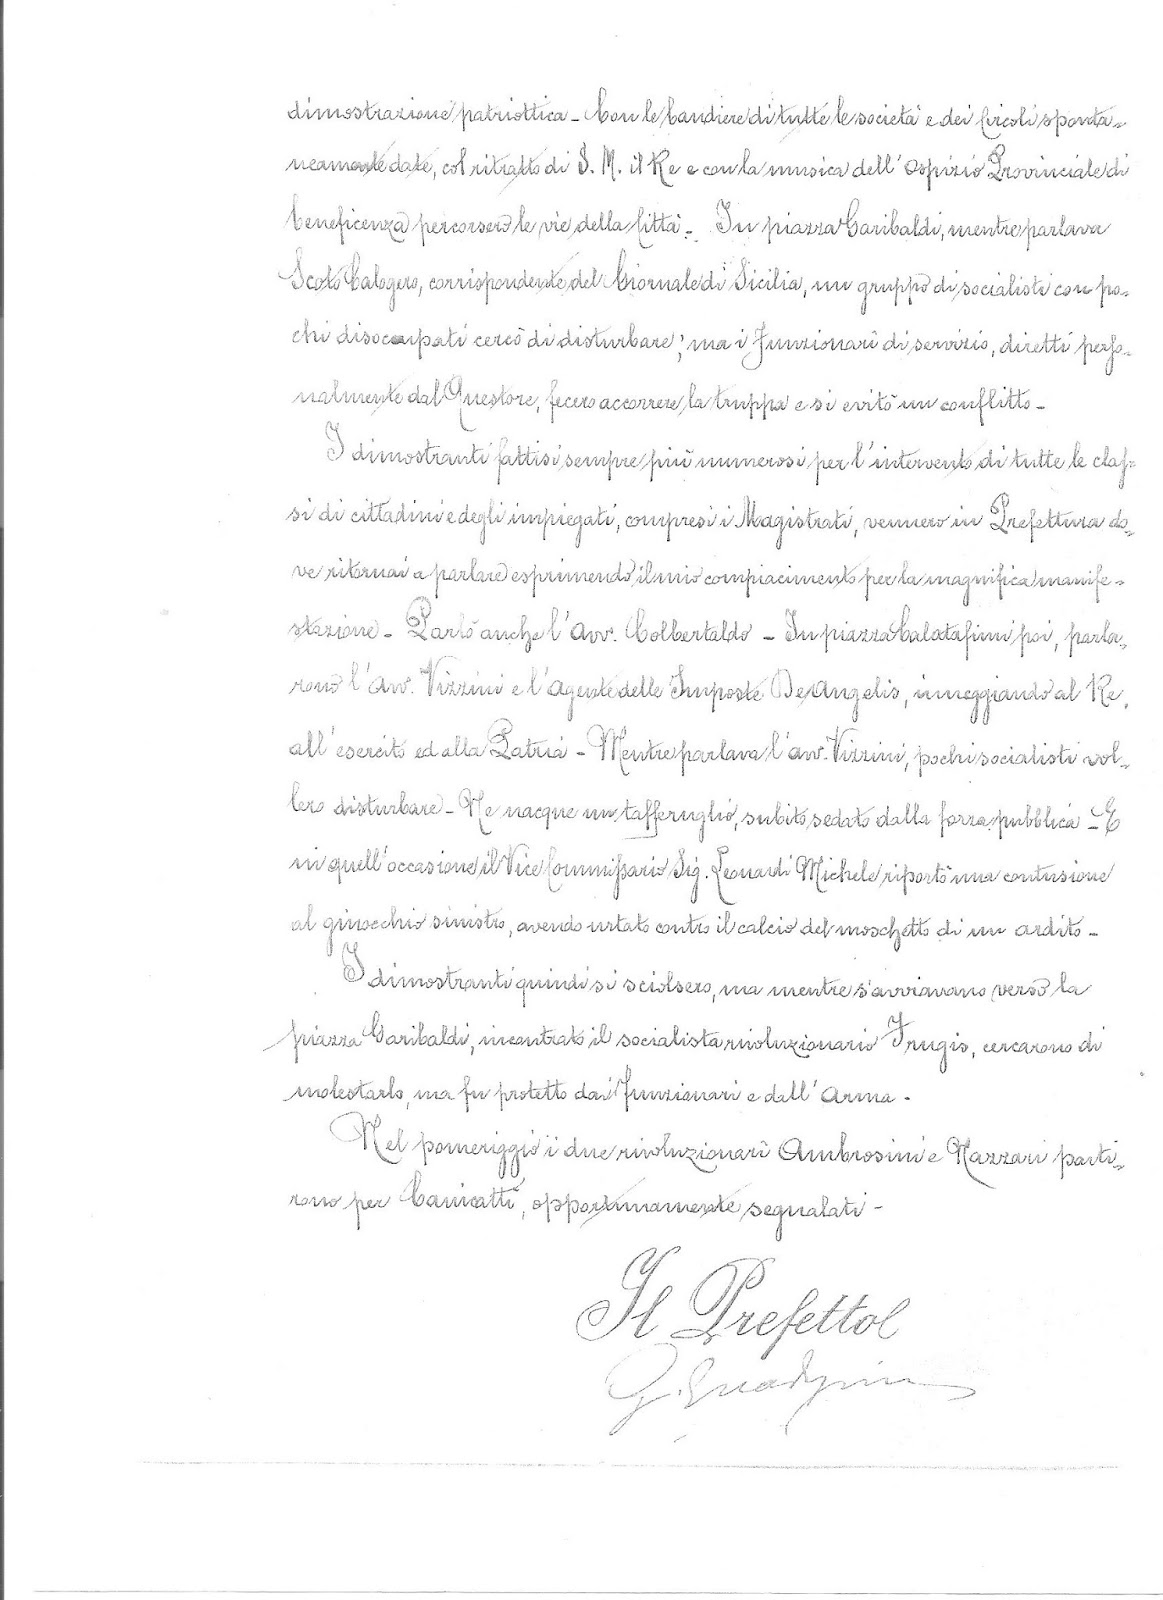 dimostrazione patriottica - Con le bandiere di tutte le società e dei Circoli sponta-
neamente date, col ritratto di S. M. il Re e con la musica dell'Ospizio Provinciale di
beneficenza percorsero le vie della Città - In piazza Garibaldi, mentre parlava
Scoto Calogero, corrispondente del Giornale di Sicilia, un gruppo di socialisti con po-
chi disoccupati cercò di disturbare; ma i Funzionari di servizio, diretti perso-
nalmente dal Questore, fecero accorrere la truppa e si evitò un conflitto -
I dimostranti fattisi sempre più numerosi per l'intervento di tutte le clas-
si di cittadini e degli impiegati, compresi i Magistrati, vennero in Prefettura do-
ve ritornai a parlare esprimendo il mio compiacimento per la magnifica manife-
stazione - Parlò anche l'Avv. Colbertaldo - In piazza Calatafimi poi, parla-
rono l'Avv. Vizzini e l'agente delle Imposte De Angelis, inneggiando al Re,
all'esercito ed alla Patria - Mentre parlava l'avv. Vizzini, pochi socialisti vol-
lero disturbare - Ne nacque un tafferuglio, subito sedato dalla forza pubblica - E
in quell'occasione il Vice Commissario Sig. Leonardi Michele riportò una contusione
al ginocchio sinistro, avendo urtato contro il calcio del moschetto di un ardito -
I dimostranti quindi si sciolsero, ma mentre s'avviavano verso la
piazza Garibaldi, incontrato il socialista rivoluzionario Frugis, cercarono di
molestarlo, ma fu protetto dai Funzionari e dall'Arma -
Nel pomeriggio i due rivoluzionari Ambrosini e Nazzari parti-
rono per Canicattì, opportunamente segnalati -
Il Prefetto